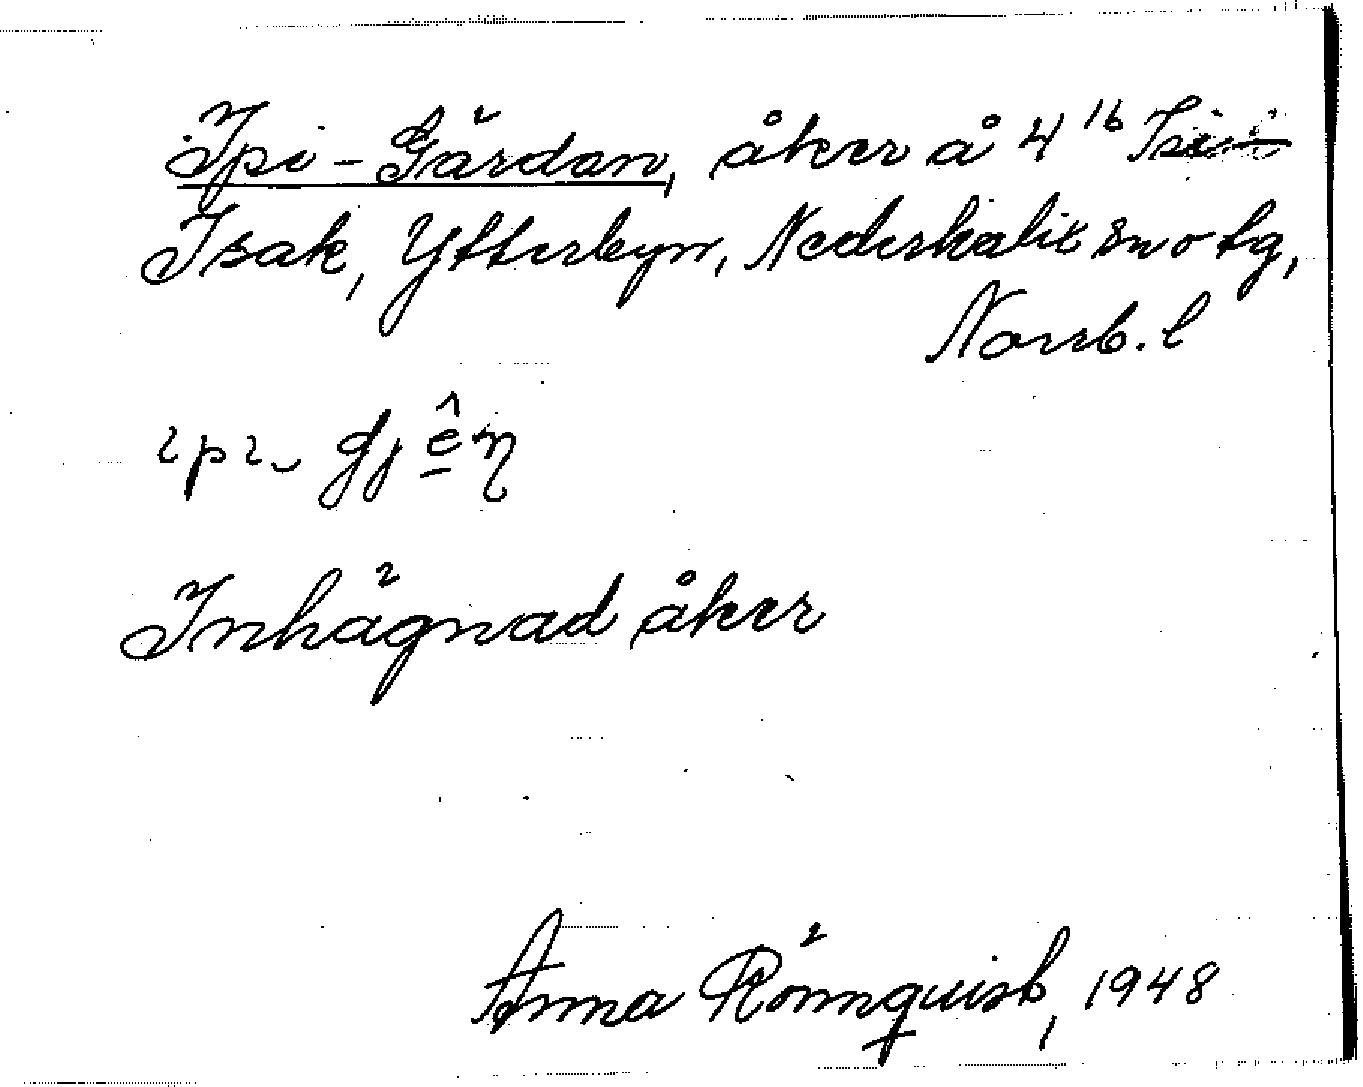 Ipi-Gärdan, åker å 4¹⁶
Isak, Ytterbyn, Nederkalix sn o tg,
Norrb. l
ɩpɩ- gjên
Inhägnad åker
Anna Rönnquist, 1948